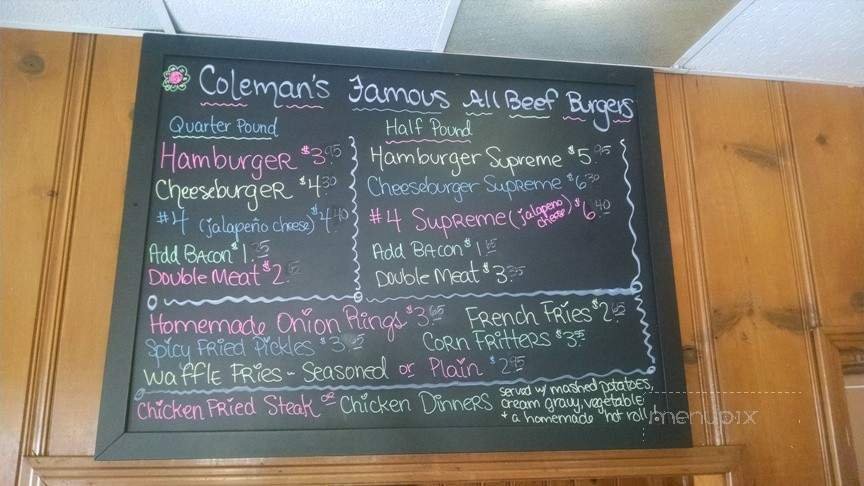 Coleman's Famous All Beef Burgers
Quarter Pound
Hamburger $3.95
Cheeseburger $4.30
#4 (jalapeño cheese) $4.40
Add Bacon $1.
Double Meat $2.
Half Pound
Hamburger Supreme $5.95
Cheeseburger Supreme $6.30
#4 Supreme (jalapeño cheese) $6.40
Add Bacon $1.
Double Meat $3.
Homemade Onion Rings $3.65
French Fries $2.
Spicy Fried Pickles $3.
Corn Fritters $3.
Waffle Fries - Seasoned or Plain $2.95
Chicken Fried Steak or Chicken Dinners
served w/ mashed potatoes,
cream gravy, vegetable
+ a homemade hot roll
menupix